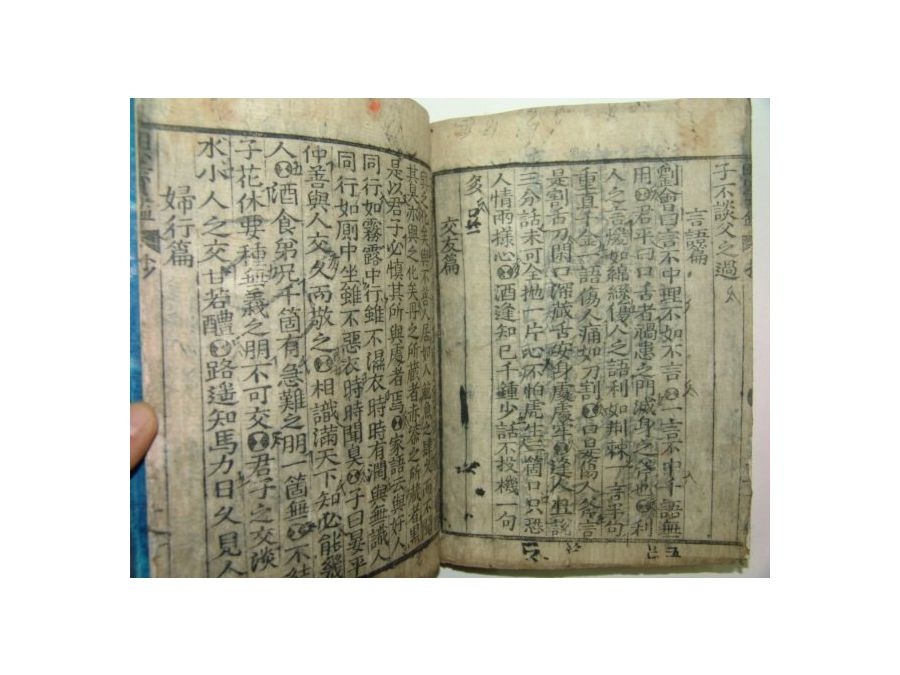 子不談父之過
言語篇
劉會曰言不中理不如不言一言不中千語無
用君平曰口舌者禍患之門滅身之斧也利
人之言煖如綿絮傷人之語利如荊棘一言半句
重直千金一語傷人痛如刀割口是傷人斧言
是割舌刀閉口深藏舌安身處處牢逢人且說
三分話未可全抛一片心不怕虎生三箇口只恐
人情兩樣心酒逢知己千鍾少話不投機一句
多
交友篇
與不善人居如入鮑魚之肆久而不聞
其臭亦與之化矣丹之所藏者赤漆之所藏者黑
是以君子必慎其所與處者焉家語云與好人
同行如霧露中行雖不濕衣時時有潤與無識人
同行如厠中坐雖不惡衣時時聞臭子曰晏平
仲善與人交久而敬之相識滿天下知心能幾
人酒食弟兄千箇有急難之朋一箇無不結
子花休要種無義之朋不可交君子之交淡
水小人之交甘若醴路遙知馬力日久見人
婦行篇
抄